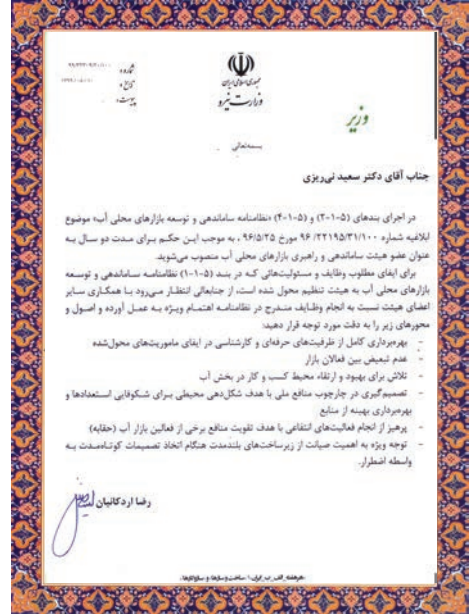 شماره :
تاریخ :
پیوست :
جمهوری اسلامی ایران
وزارت نیرو
وزیر
بسمه‌تعالی
جناب آقای دکتر سعید نی‌ریزی
در اجرای بندهای (۵-۱-۲) و (۵-۱-۴) «نظامنامه ساماندهی و توسعه بازارهای محلی آب» موضوع
ابلاغیه شماره ۹۶/۲۲۱۹۵/۳۱/۱۰۰ مورخ ۹۶/۵/۲۵ ، به موجب این حکم برای مدت دو سال به
عنوان عضو هیئت ساماندهی و راهبری بازارهای محلی آب منصوب می‌شوید.
برای ایفای مطلوب وظایف و مسئولیتهائی که در بند (۵-۱-۱) نظامنامه ساماندهی و توسعه
بازارهای محلی آب به هیئت تنظیم محول شده است، از جنابعالی انتظار می‌رود با همکاری سایر
اعضای هیئت نسبت به انجام وظایف مندرج در نظامنامه اهتمام ویژه به عمل آورده و اصول و
محورهای زیر را به دقت مورد توجه قرار دهید:
- بهره‌برداری کامل از ظرفیت‌های حرفه‌ای و کارشناسی در ایفای ماموریت‌های محول‌شده
- عدم تبعیض بین فعالان بازار
- تلاش برای بهبود و ارتقاء محیط کسب و کار در بخش آب
- تصمیم‌گیری در چارچوب منافع ملی با هدف شکل‌دهی محیطی برای شکوفایی استعدادها و
بهره‌برداری بهینه از منابع
- پرهیز از انجام فعالیت‌های انتفاعی با هدف تقویت منافع برخی از فعالین بازار آب (حقابه)
- توجه ویژه به اهمیت صیانت از زیرساخت‌های بلندمدت هنگام اتخاذ تصمیمات کوتاه‌مدت به
واسطه اضطرار.
رضا اردکانیان